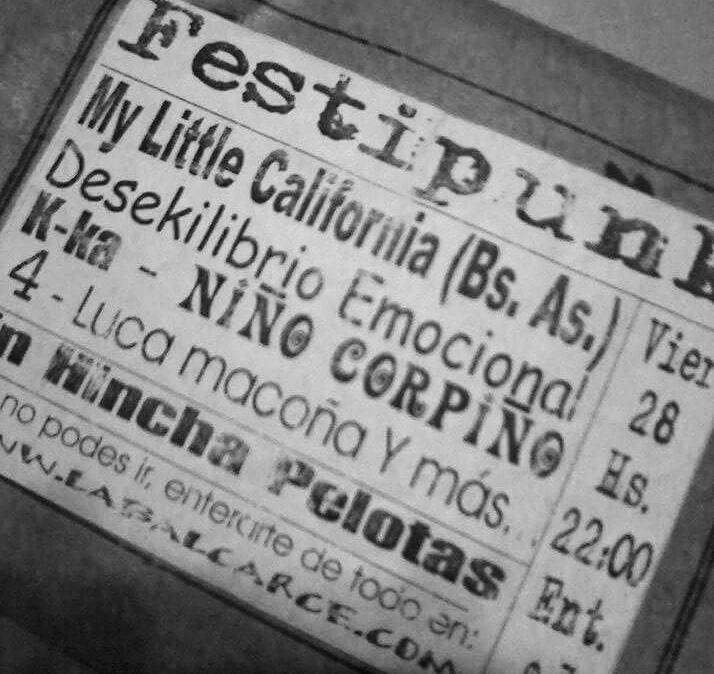 Festipunk
My Little California (Bs. As.)
Desekilibrio Emocional
K-ka - NIÑO CORPIÑO
4 - Luca macoña Y más...
in Hincha Pelotas
no podes ir, enterarte de todo en:
WWW.LABALCARCE.COM
Vier
28
Hs.
22:00
Ent.